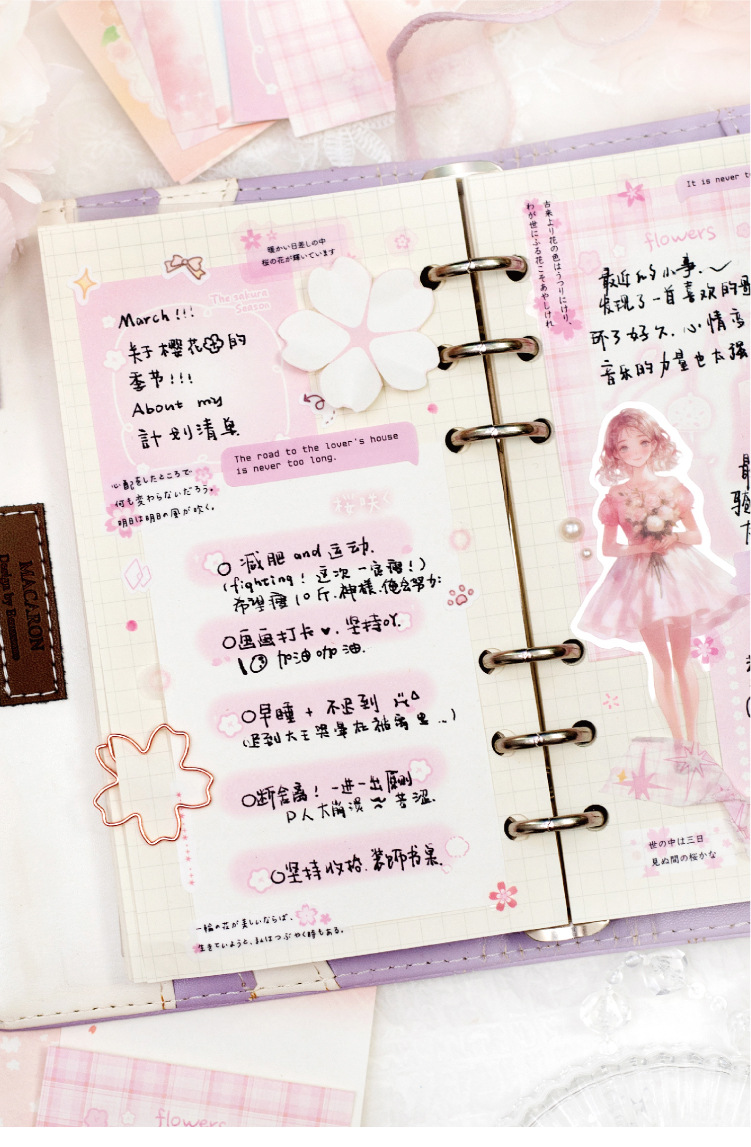 暖かい日差しの中
桜の花が輝いています
The sakura
Season
March!!!
关于樱花的
季节!!!
About my
計划清单
The road to the lover's house
is never too long.
心配をしたところで
何も変わらないだろう。
明日は明日の風が吹く。
桜咲く
减肥 and 运动.
(fighting! 这次一定瘦!)
希望瘦10斤.神様.俺会努力
画画打卡♥.坚持吖.
加油加油.
早睡 + 不迟到
(迟到大王梁
断舍离! 一进一出原则
P人大崩溃 ≈ 苦涩.
坚持收拾.装饰书桌.
一輪の花が美しいならば、
生きていようと、私はつぶやく時もある。
MACARON
Design by
It is never t
古来より花の色はうつりにけり、
わが世にふる花こそあやしけれ
flowers
最近的小事.
发现了一首喜欢的
环了好久.心情
音乐的力量也太强
最
世の中は三日
見ぬ間の桜かな
flowers